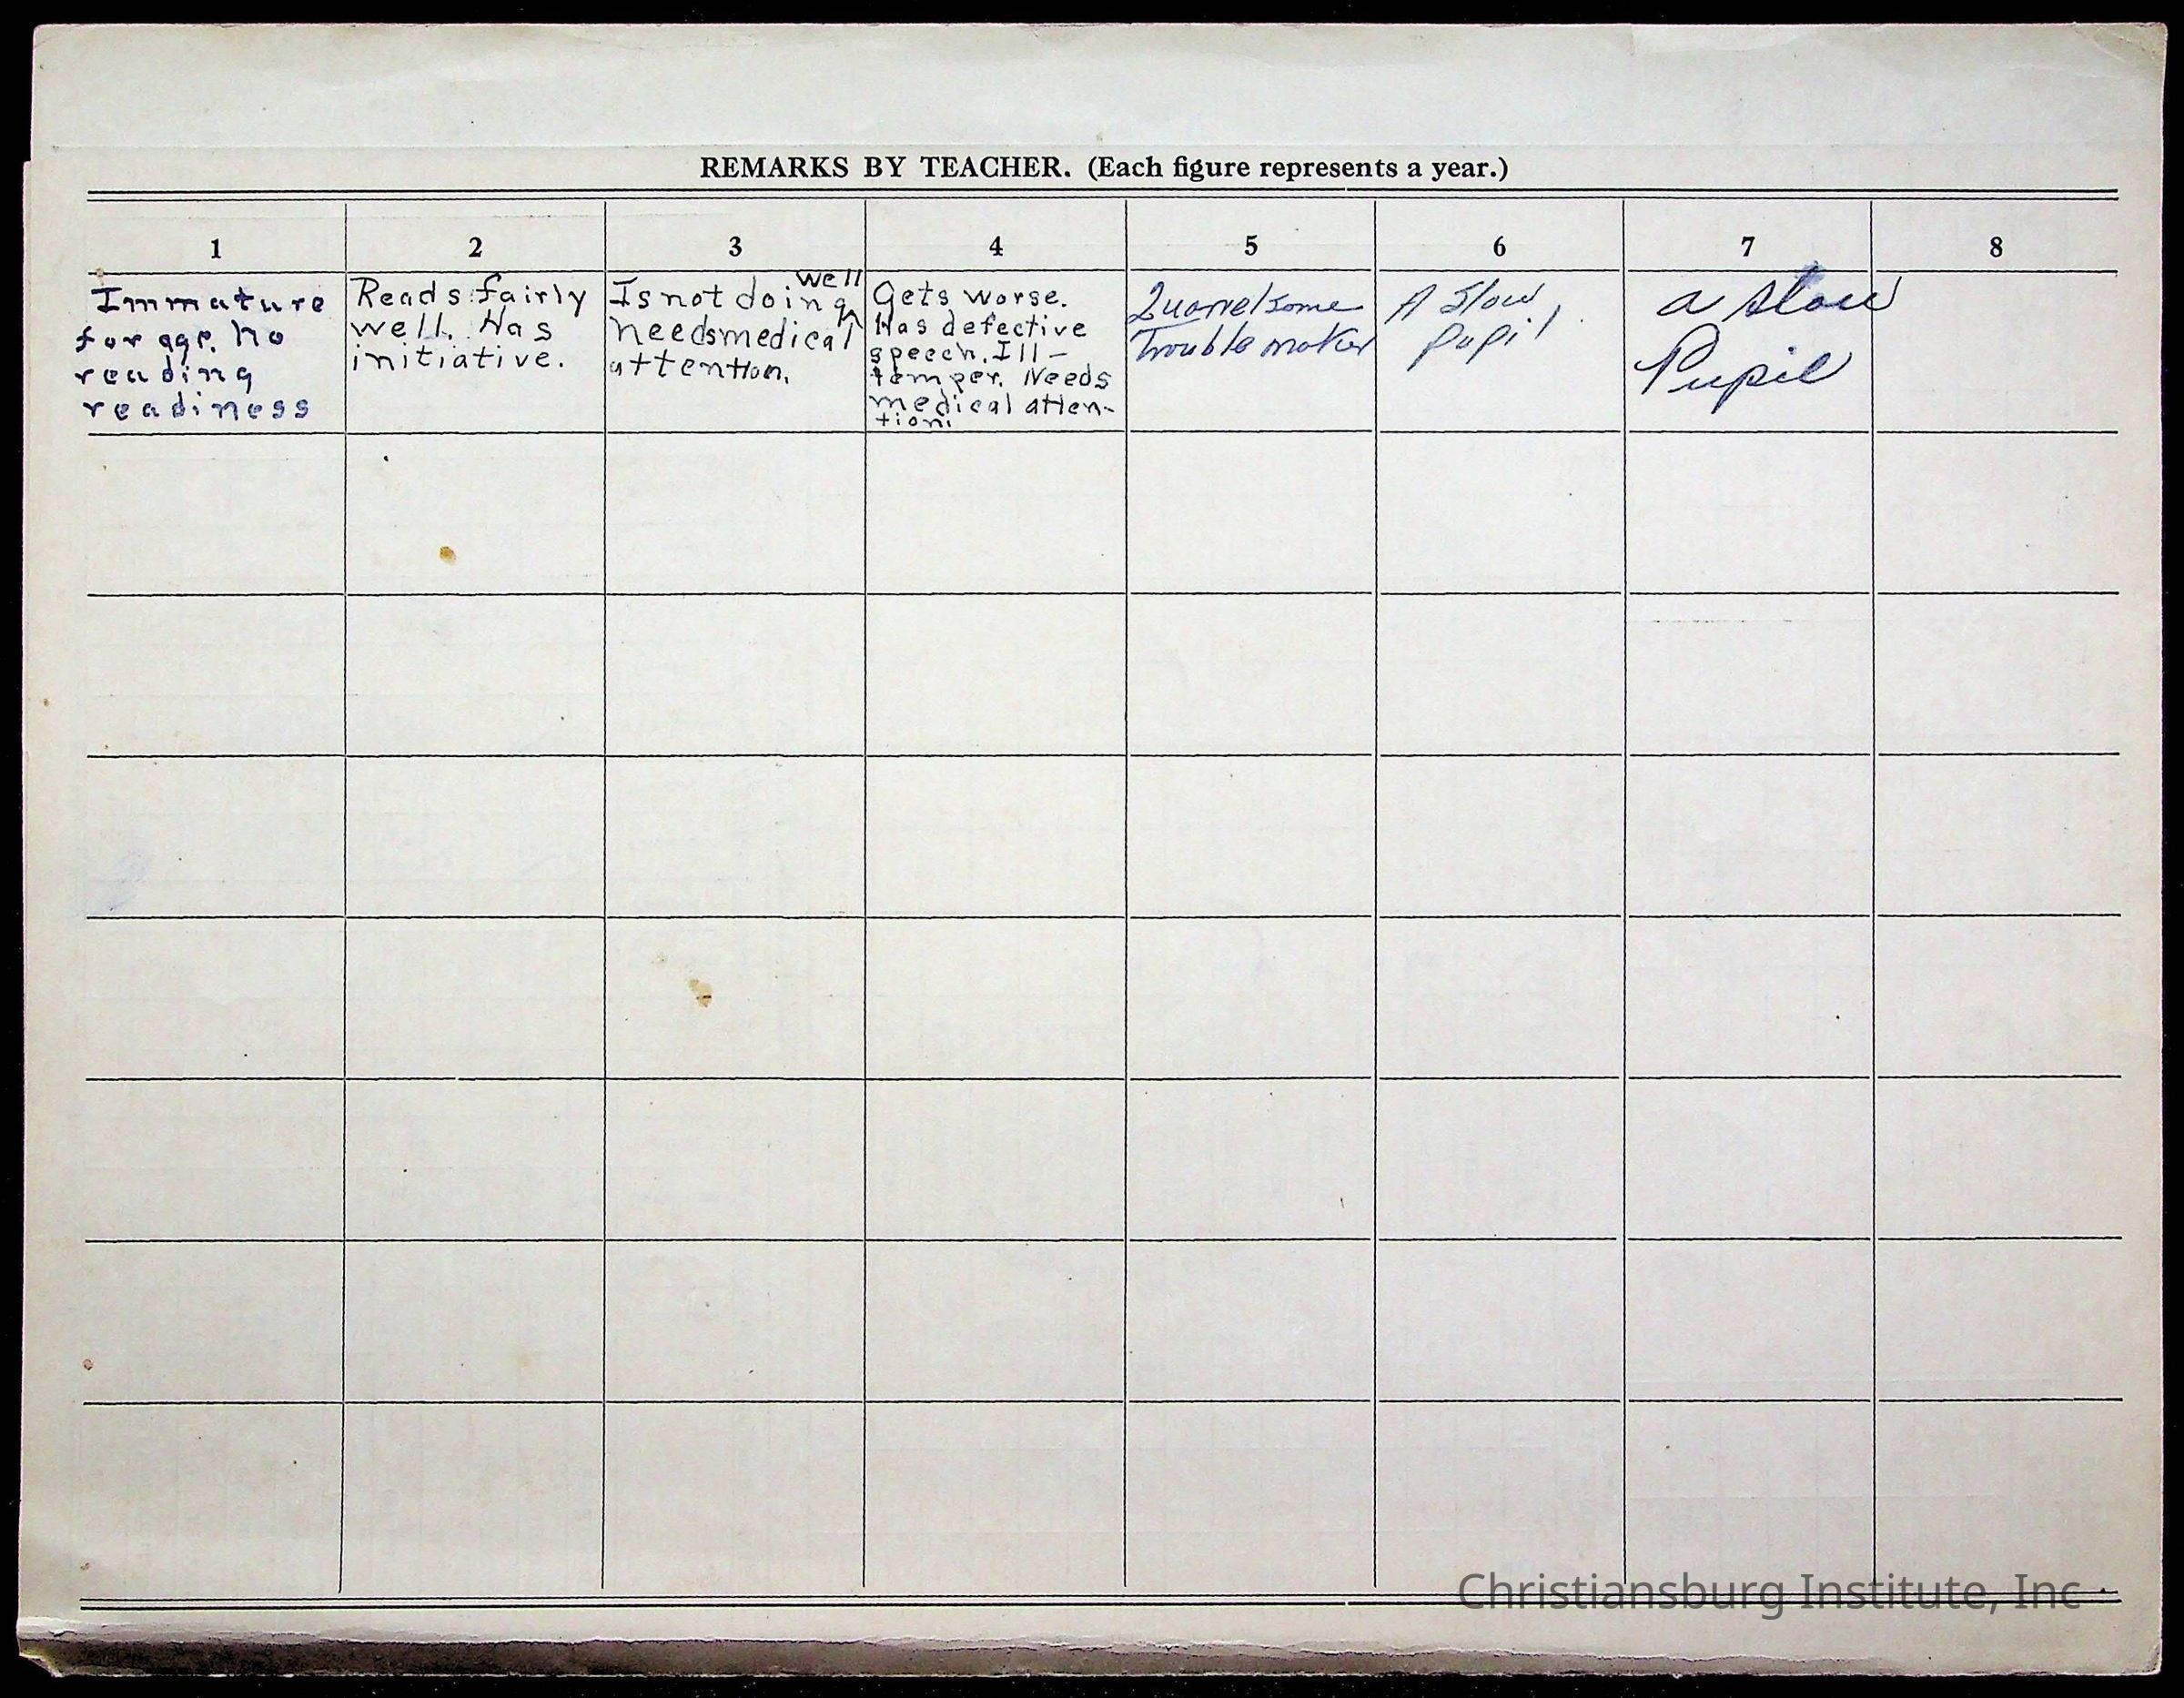 REMARKS BY TEACHER. (Each figure represents a year.)
1 2 3 4 5 6 7 8
Immature
for age. No
reading
readiness
Reads fairly
well. Has
initiative.
Is not doing well
Needs medical
attention.
Gets worse.
Has defective
speech. Ill-
temper. Needs
medical atten-
tion.
Quarrelsome
Trouble maker
A Slow
pupil
a slow
Pupil
Christiansburg Institute, Inc